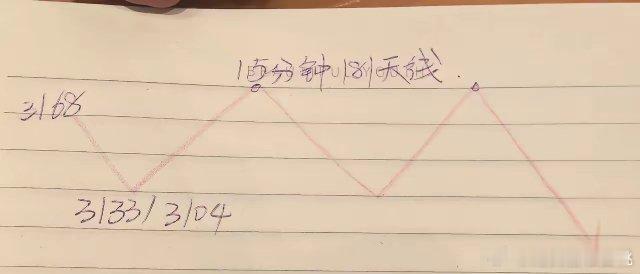 1百分钟189天线.
3168
3133/3104